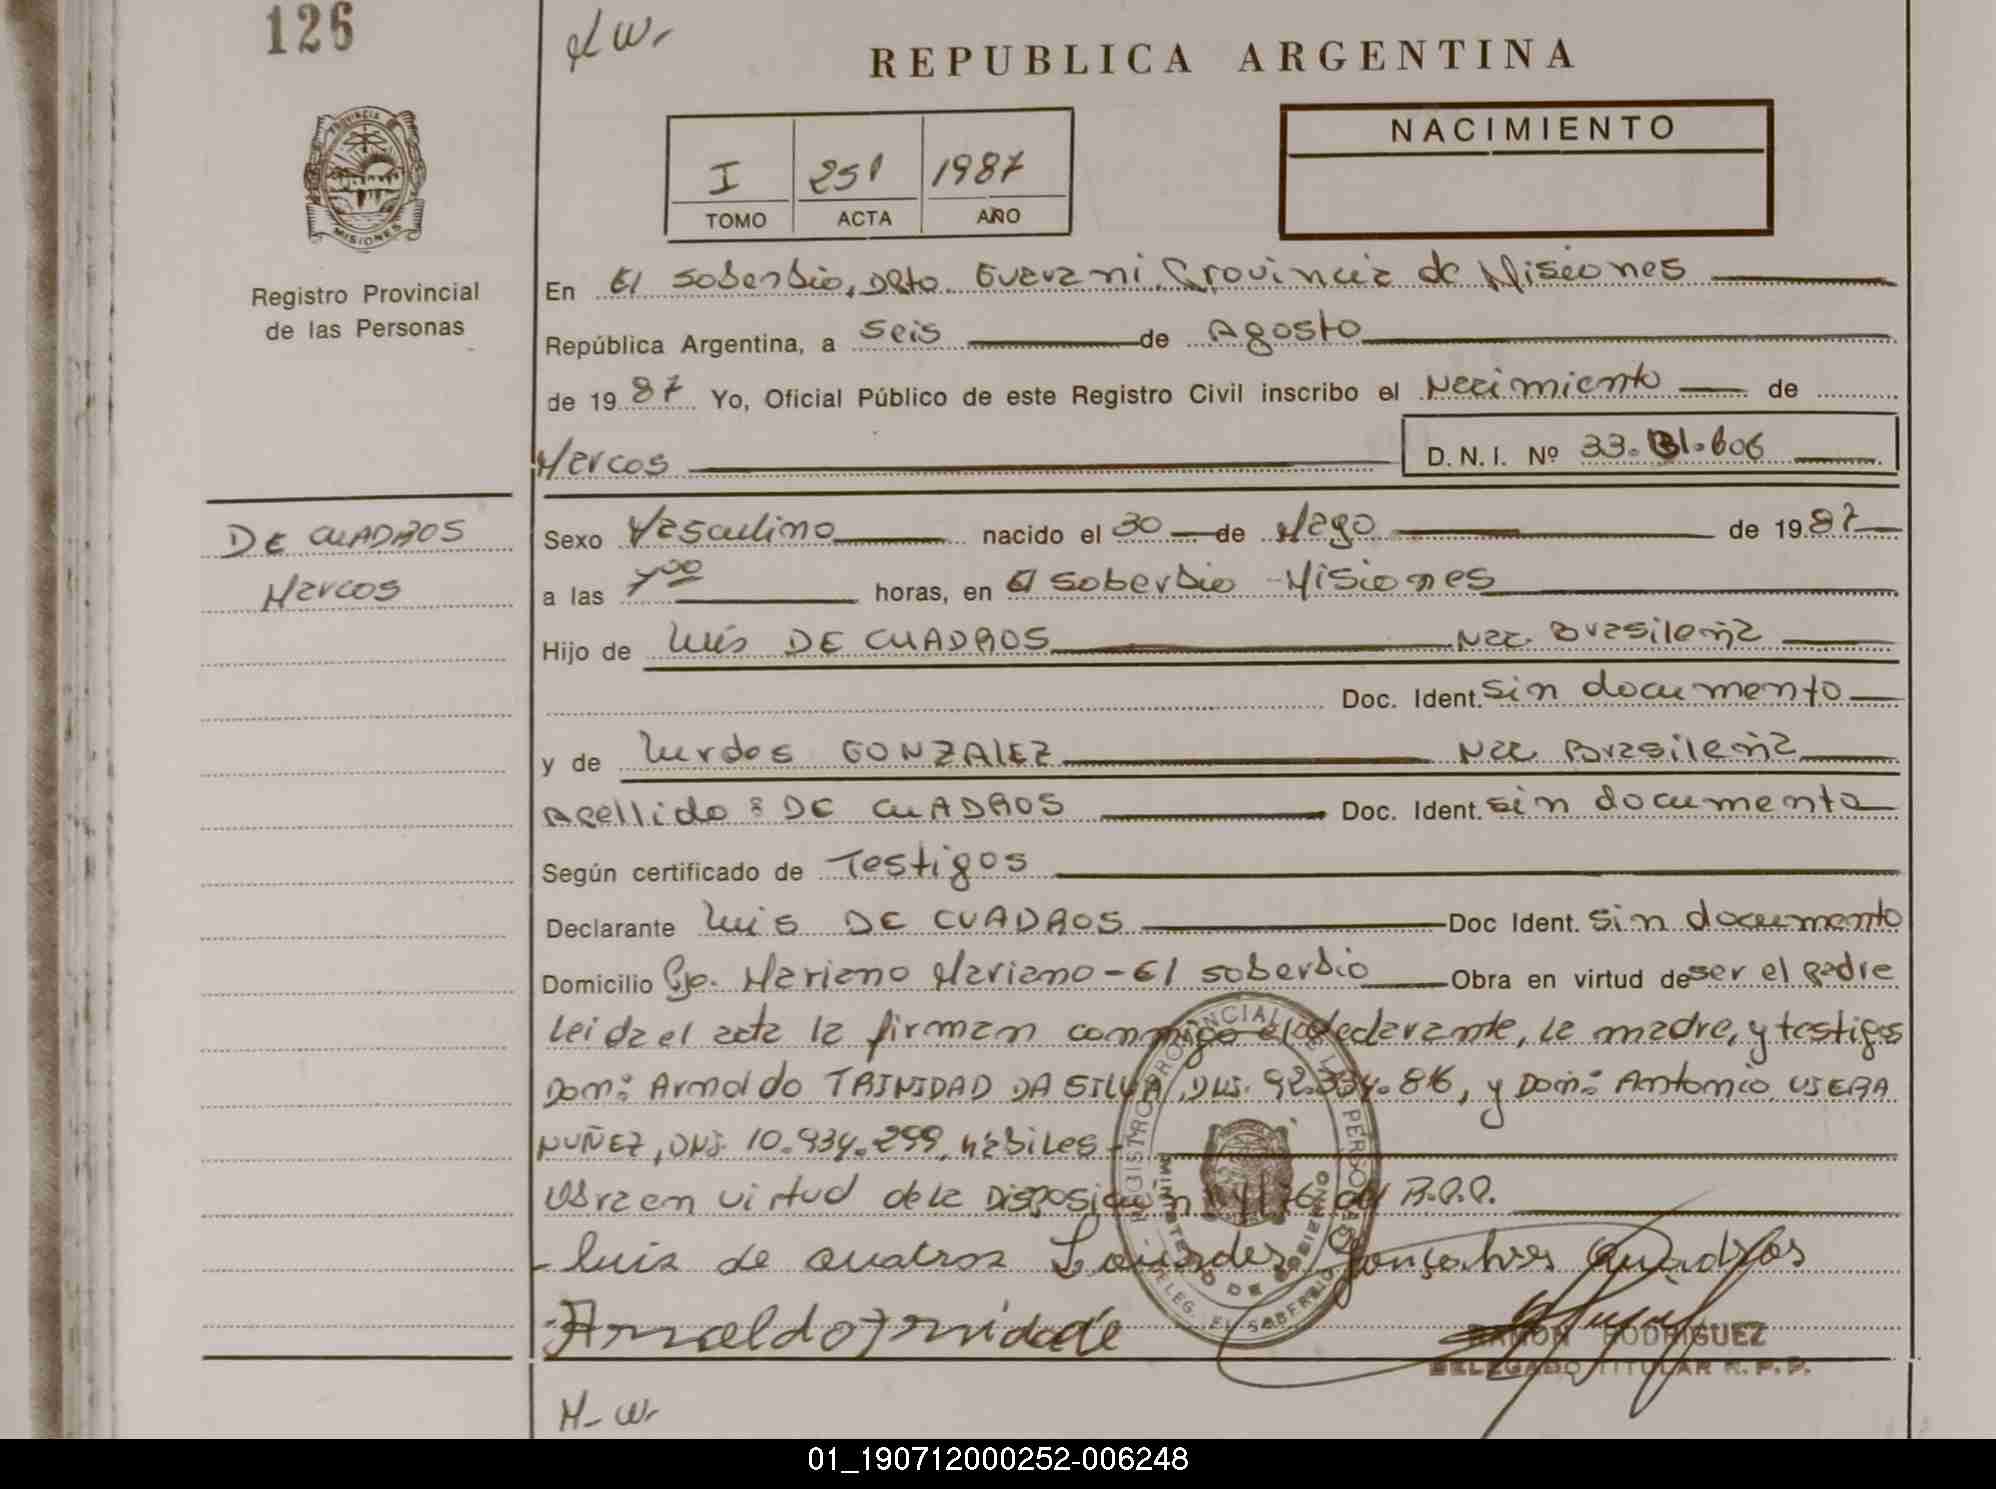 126
REPUBLICA ARGENTINA
I 251 1987
TOMO ACTA AÑO
NACIMIENTO
PROVINCIA DE
MISIONES
Registro Provincial
de las Personas
En El Soberbio, Dpto. Guarani, Provincia de Misiones
República Argentina, a Seis de Agosto
de 1987 Yo, Oficial Público de este Registro Civil inscribo el Nacimiento de
Marcos D.N.I. Nº 33. 606
DE CUADROS
Marcos
Sexo Masculino nacido el 30 de Mayo de 1987
a las 7 00 horas, en El Soberbio - Misiones
Hijo de Luis DE CUADROS Nac. Brasileña
Doc. Ident. Sin documento
y de Lurdes GONZALEZ Nac Brasileña
Apellido: DE CUADROS Doc. Ident. sin documento
Según certificado de Testigos
Declarante Luis DE CUADROS Doc Ident. sin documento
Domicilio Pje. Mariano Mariano - El soberbio Obra en virtud de ser el padre
Leida el acta la firman conmigo el declarante, la madre, y testigos
Dom: Arnoldo TRINIDAD DA SILVA, DNI. 92.334.816, y Dom: Antonio USERA
NUÑEZ, DNI. 10.934.299, hábiles -
Obra en virtud de la Disposición del R.P.P.
REGISTRO PROVINCIAL DE LAS PERSONAS
MINISTERIO DE GOBIERNO
DELEG. EL SOBERBIO
- Luis de cuatros Lourdes Gonçalves Quadros
Arnaldo trindade
RAMON RODRIGUEZ
DELEGADO TITULAR R.P.P.
M-W-
01_190712000252-006248